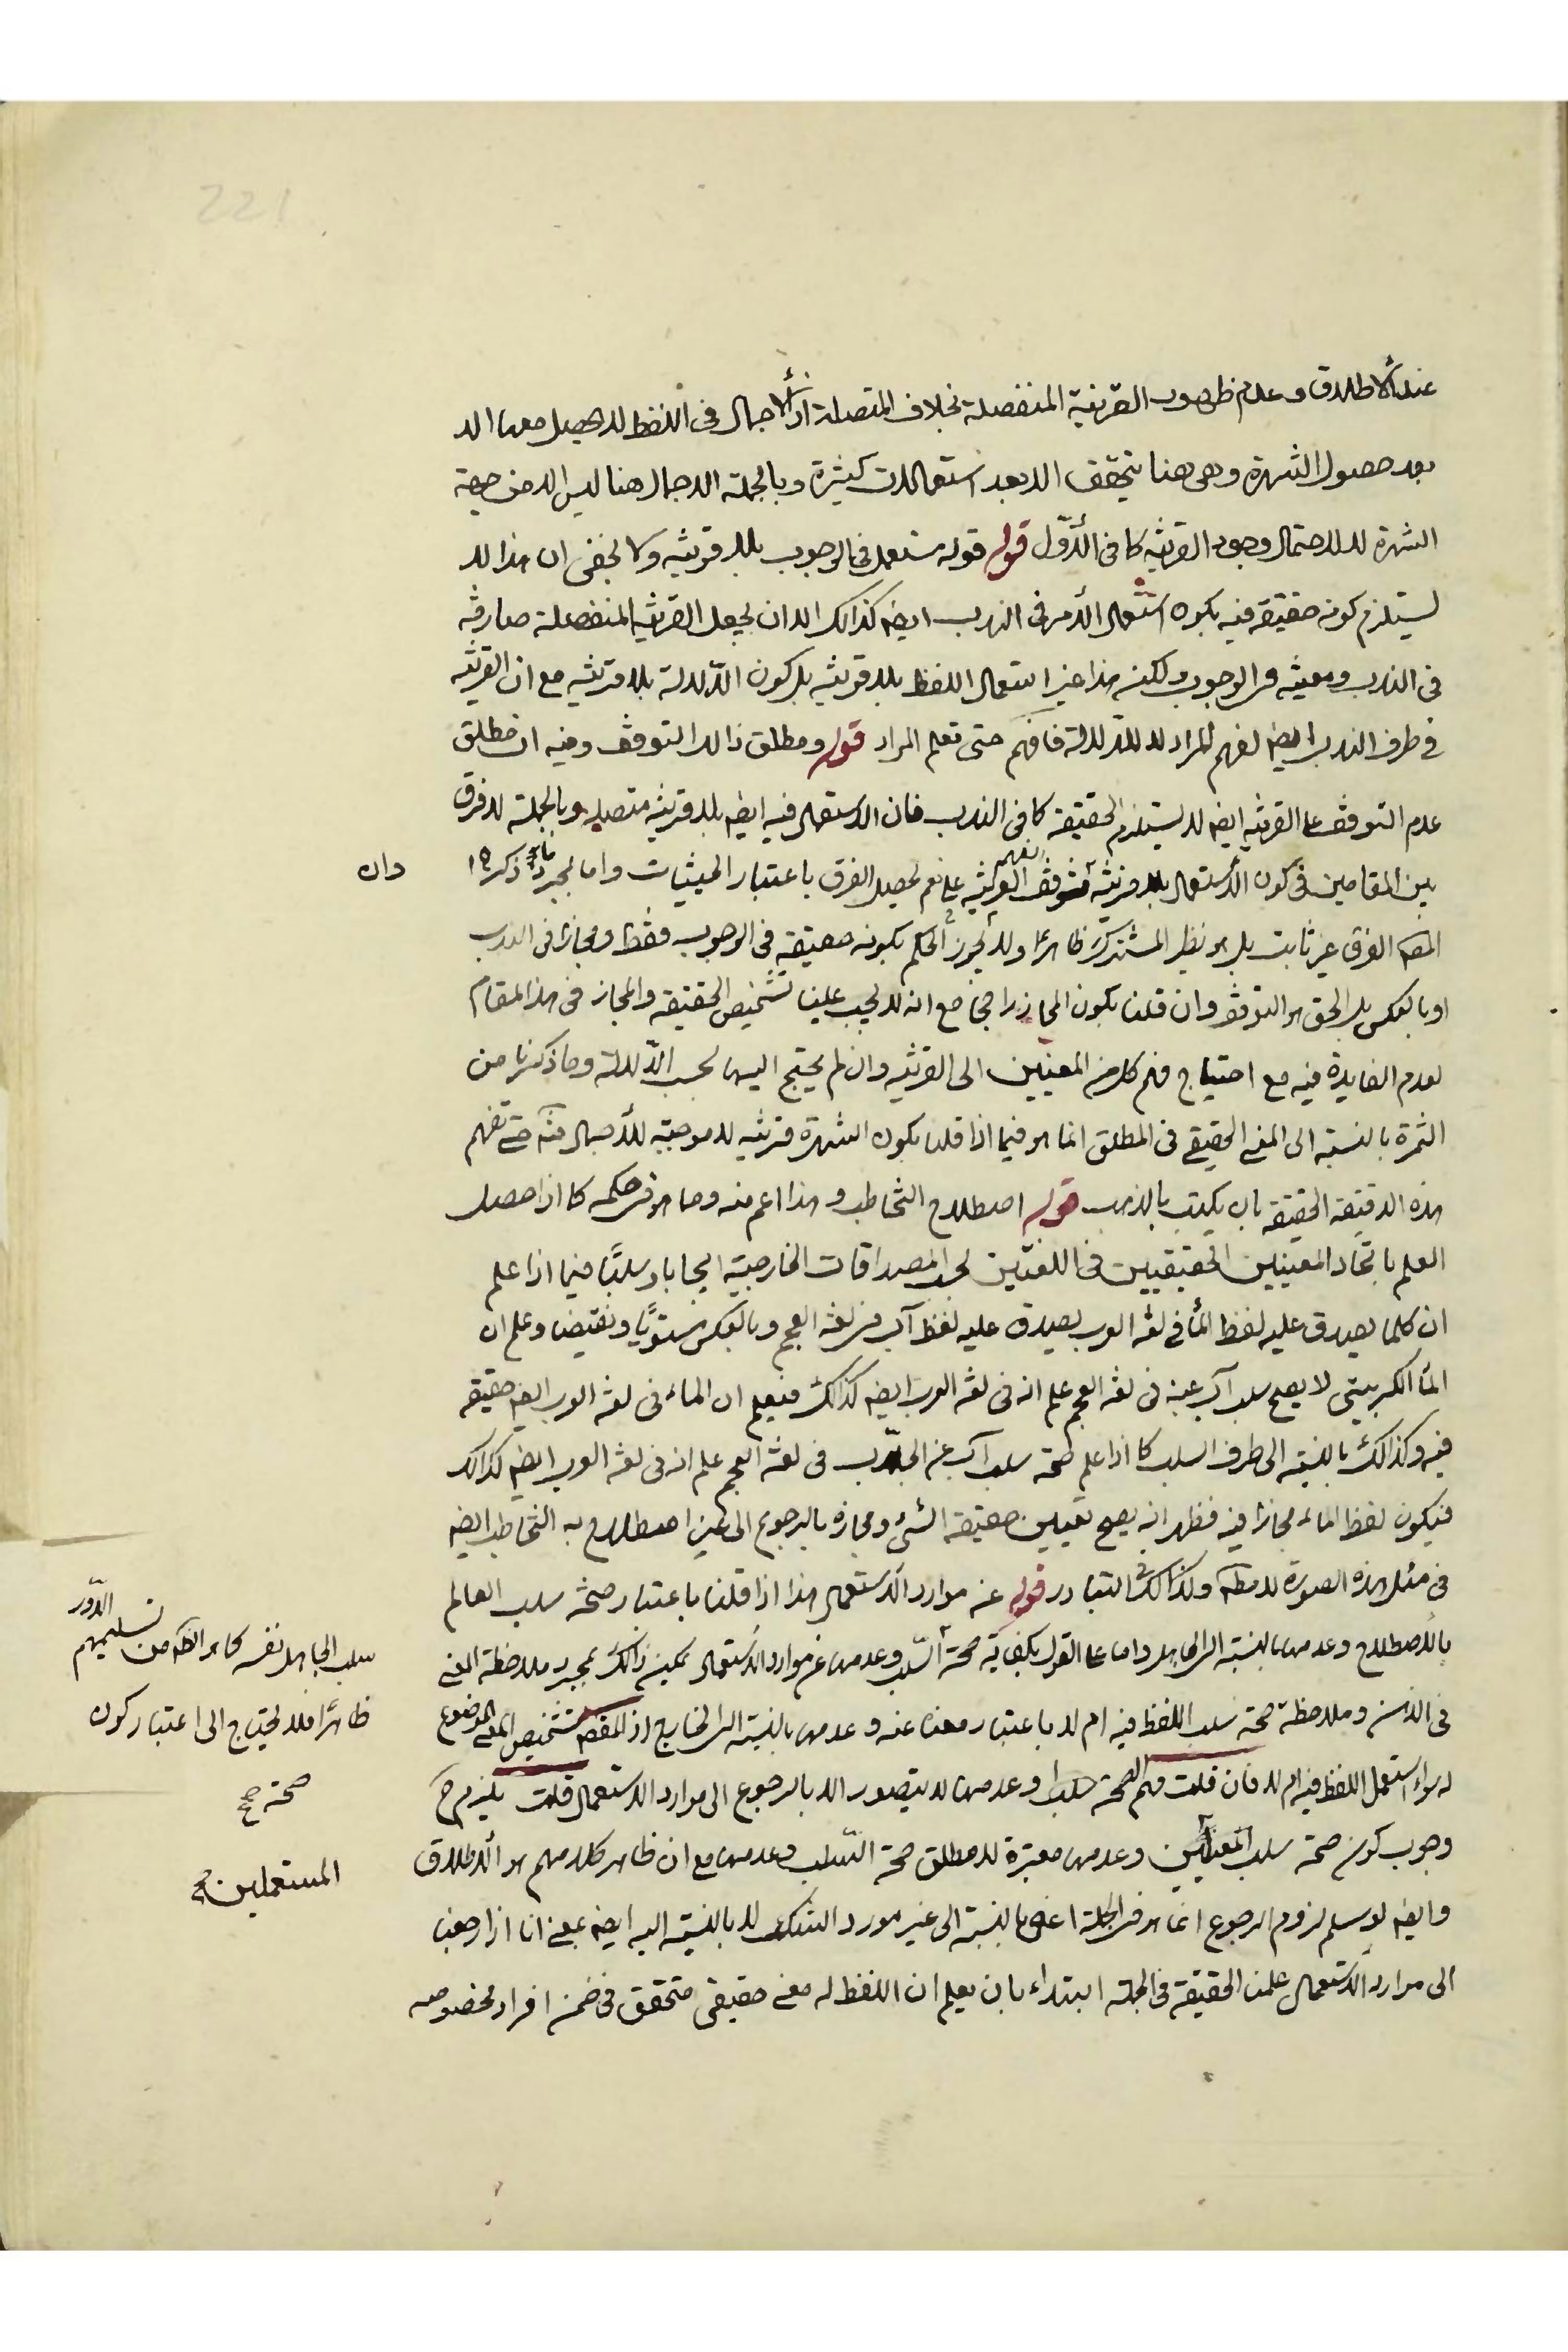 عند الاطلاق وعدم ظهور القرينة المنفصلة بخلاف المتصلة اذ الاجمال فى اللفظ لا يحصل معها الا
بعد حصول الشهرة وهى هنا يتحقق الا بعد استعمالات كثيرة وبالجملة الاجمال هنا ليس الا من جهة
الشهرة لا لاحتمال وجود القرينة كما فى الأوّل قوله قوله يستعمل فى الوجوب بلا قرينة ولا يخفى ان هذا لا
يستلزم كونه حقيقة فيه بكون استعمال الأمر فى الندب ايضا كذالك الا ان يجعل القرينة المنفصلة صارفة
فى الندب ومعينة فى الوجوب ولكنه هذا غير استعمال اللفظ بلا قرينة بل كون الدّلالة بلا قرينة مع ان القرينة
فى طرف الندب ايضا لفهم المراد لا للدّلالة فافهم حتى تعلم المراد قوله ومطلق ذالك التوقف وفيه ان مطلق
عدم التوقف على القرينة ايضا لا يستلزم الحقيقة كما فى الندب فان الاستعمال فيه ايضا بلا قرينة متصلة وبالجملة لا فرق
بين المقامين فى كون الأستعمال بلا قرينة متوقف الفهم على القرينة نعم يحصل الفرق باعتبار الحيثيات واما بمجرد ما ذكره
وان
المص الفرق غير ثابت بل هو نظير المشترك ظاهرا ولا يجوز الحكم بكونه حقيقة فى الوجوب فقط ومجازا فى الندب
او بالعكس بل الحق هو التوقف وان قلنا بكون المجاز راجحا مع انه لا يجب علينا تشخيص الحقيقة والمجاز فى هذا المقام
لعدم الفايدة فيه مع احتياج فهم كل من المعنيين الى القرينة وان لم يحتج اليها بحسب الدّلالة وما ذكرنا من
الثمرة بالنسبة الى المعنى الحقيقى فى المطلق انما هو فيما اذا قلنا بكون الشهرة قرينة لا موجبة للأجمال فتامّل حتى تفهم
هذه الدقيقة الحقيقة بان يكتب بالذهب قوله اصطلاح التخاطب وهذا اعم منه وما هو فى حكمه كما اذا حصل
العلم باتحاد المعنيين الحقيقيين فى اللغتين بحسب المصداقات الخارجية ايجابا وسلبًا فيما اذا علم
ان كلما يصدق عليه لفظ المأ فى لغة العرب يصدق عليه لفظ آب فى لغة العجم وبالعكس مستويًا ونقيضا وعلم ان
المأ الكبريتى لا يصح سلب آب عنه فى لغة العجم علم انه فى لغة العرب ايضا كذالك فيعلم ان الماء فى لغة العرب ايضا حقيقة
فيه وكذالك بالنسبة الى طرف السلب كما اذا علم صحة سلب آب عن الجلاب فى لغة العجم علم انه فى لغة العرب ايضا كذالك
فيكون لفظ الماء مجازا فيه فظهر انه يصح تعيين حقيقة الشئ ومجازه بالرجوع الى غير اصطلاح به التخاطب ايضا
فى مثل هذه الصورة لا مطلقا وكذالك التبادر قوله عن موارد الأستعمال هذا اذا قلنا باعتبار صحة سلب العالم
بالأصطلاح وعدمها بالنسبة الى الجاهل واما على القول بكفاية صحة السّلب وعدمها عن موارد الاستعمال يمكن ذالك بمجرد ملاحظة المعنى
فى الذهن وملاحظة صحة سلب اللفظ فيه ام لا باعتبار معناه عنه وعدمها بالنسبة الى الخارج اذ المقصد تشخيص المعنى الموضوع
له سواء استعمل اللفظ فيه ام لا فان قلت فهم الصحة سلبا وعدمها لا يتصور الا بالرجوع الى موارد الاستعمال قلت يلزم ح
وجوب كون صحة سلب المعنيين وعدمها معتبرة لا مطلق صحة السّلب وعدمها مع ان ظاهر كلامهم هو الأطلاق
وايضا لو سلم لزوم الرجوع انما هو فى الجملة اعنى بالنسبة الى غير مورد الشك لا بالنسبة اليه ايضا بمعنى انا اذا رجعنا
الى موارد الأستعمال علمنا الحقيقة فى الجملة ابتداء بان يعلم ان اللفظ له معنى حقيقى متحقق فى ضمن افراد مخصوصه
سلب الجاهل نفسه كما هو الظاهر من تسليمهم الدّور
ظاهرا فلا يحتاج الى اعتبار كون
صحة صح
المستعملين